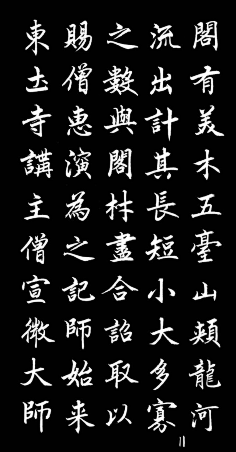 閣有美木五臺山頰龍河
流出計其長短小大多寡
之數與閣材盡合詔取以
賜僧恵演為之記師始来
東圡寺講主僧宣微大師